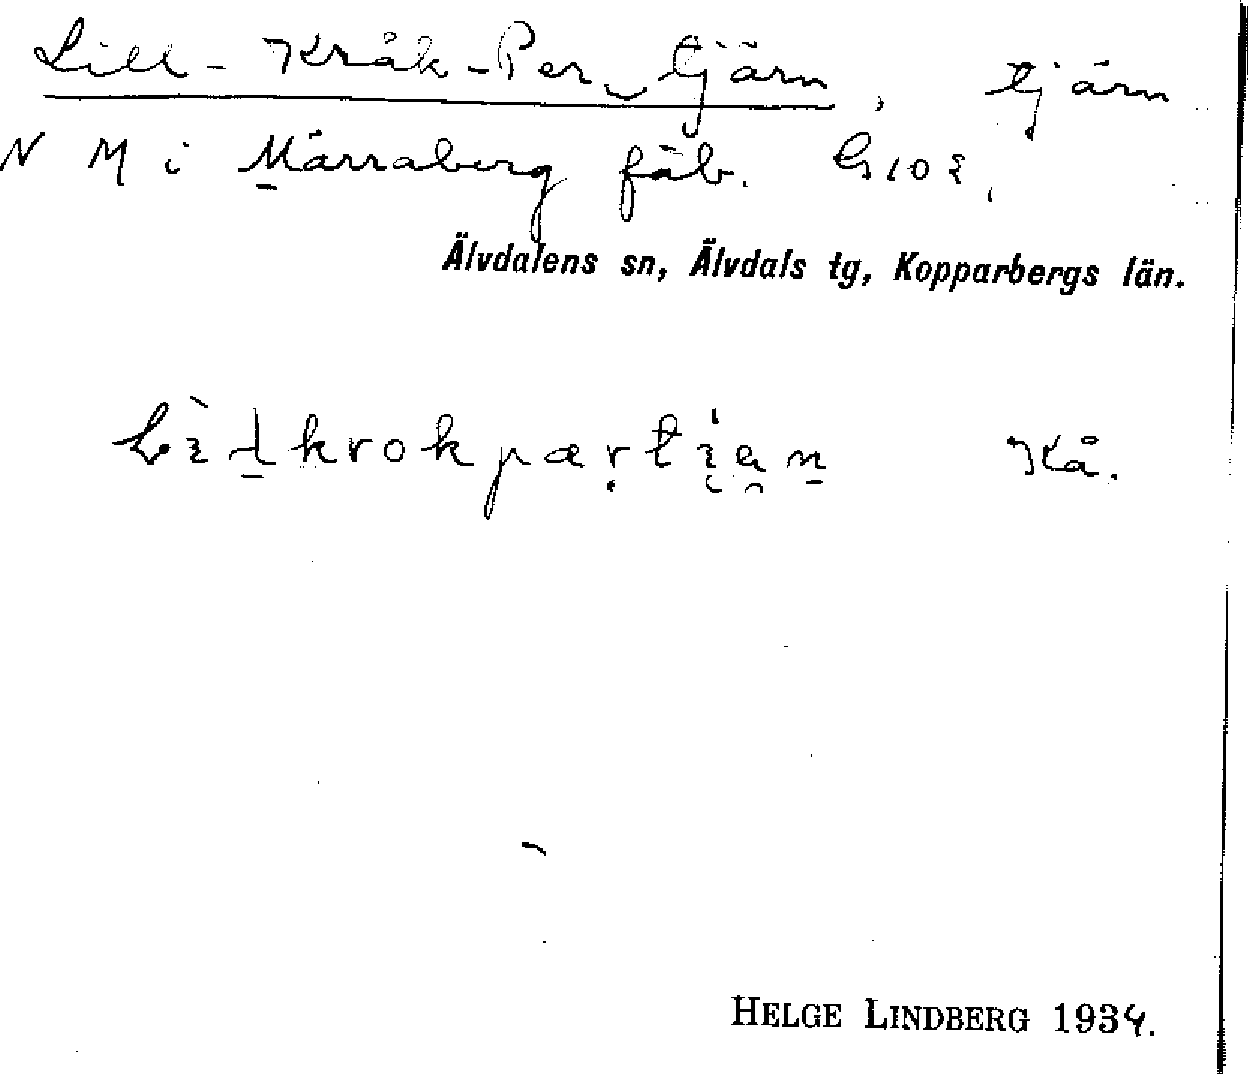 Lill-Kråk-Per tjärn, tjärn
N M i Märraberg fäb.
Älvdalens sn, Älvdals tg, Kopparbergs län.
Kå.
HELGE LINDBERG 1934.